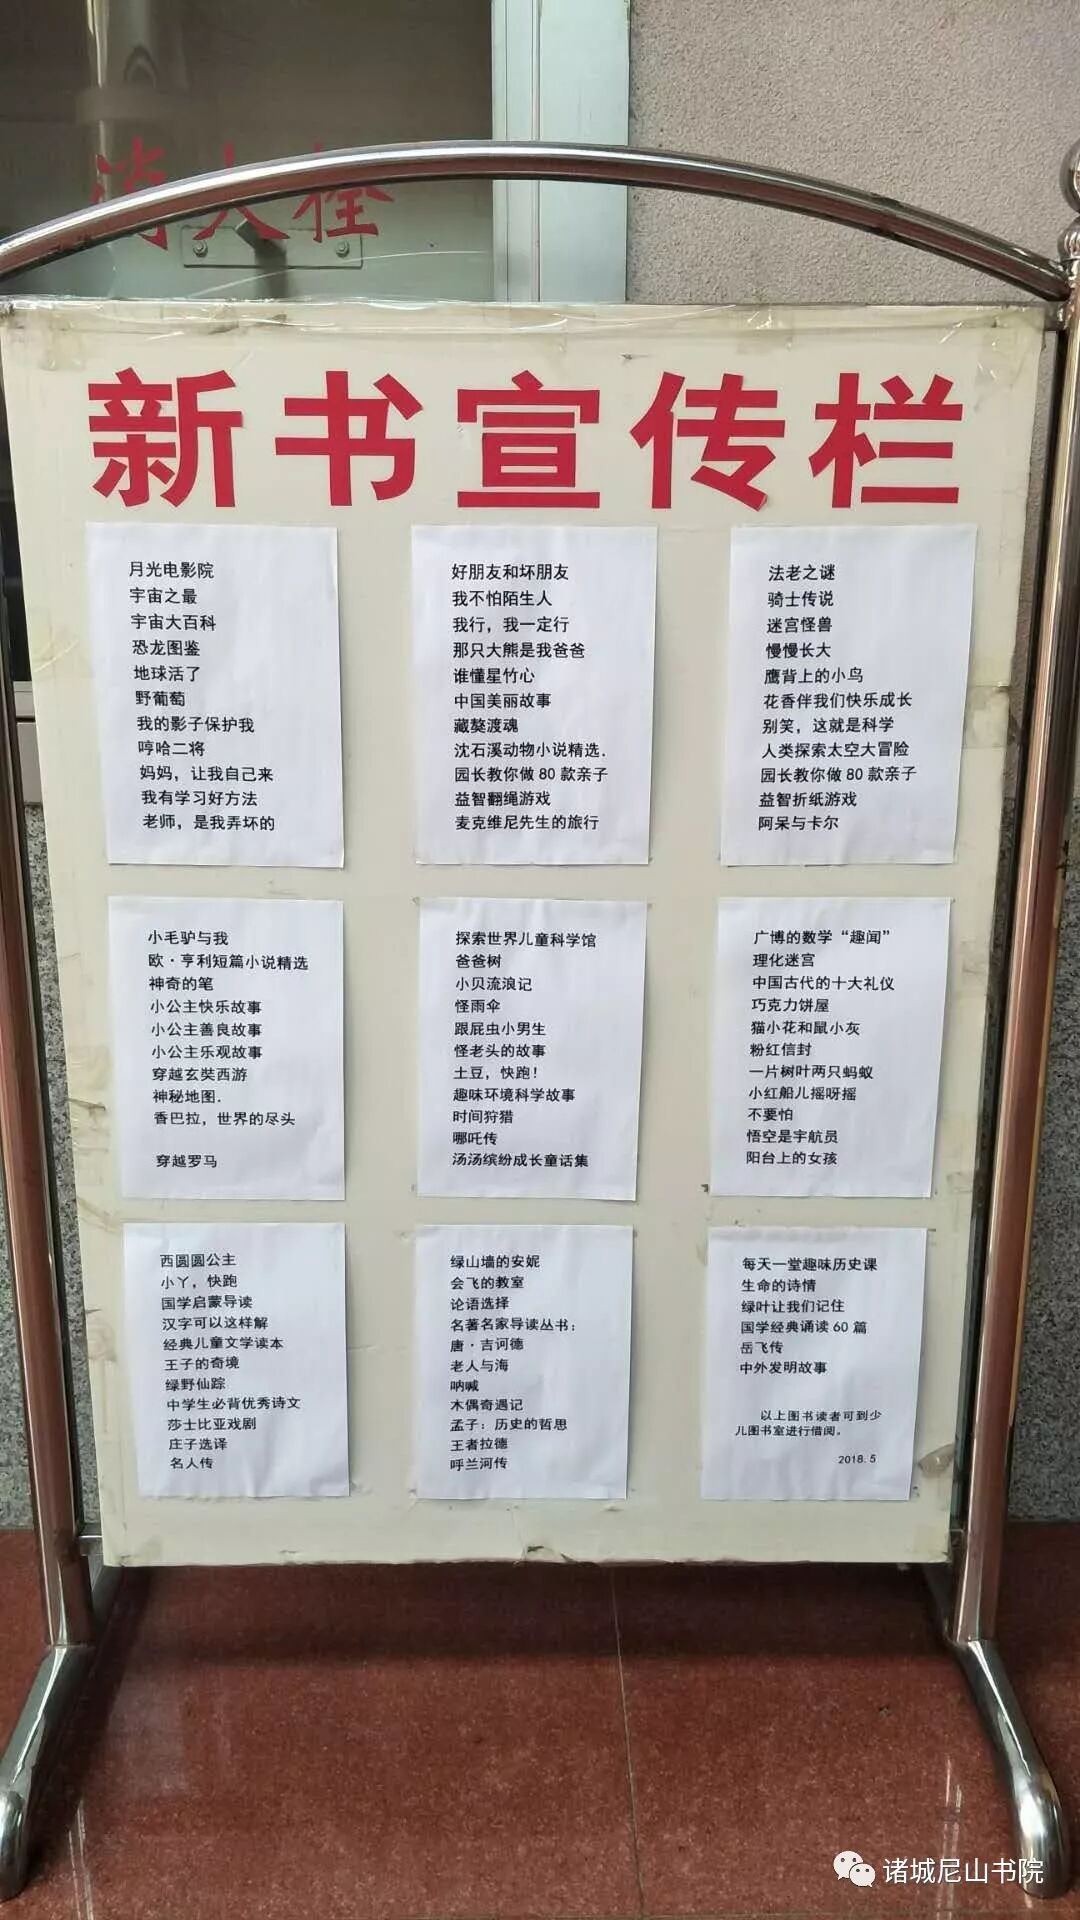 消火栓
新书宣传栏
月光电影院
宇宙之最
宇宙大百科
恐龙图鉴
地球活了
野葡萄
我的影子保护我
哼哈二将
妈妈，让我自己来
我有学习好方法
老师，是我弄坏的
好朋友和坏朋友
我不怕陌生人
我行，我一定行
那只大熊是我爸爸
谁懂星竹心
中国美丽故事
藏獒渡魂
沈石溪动物小说精选.
园长教你做80款亲子
益智翻绳游戏
麦克维尼先生的旅行
法老之谜
骑士传说
迷宫怪兽
慢慢长大
鹰背上的小鸟
花香伴我们快乐成长
别笑，这就是科学
人类探索太空大冒险
园长教你做80款亲子
益智折纸游戏
阿呆与卡尔
小毛驴与我
欧·亨利短篇小说精选
神奇的笔
小公主快乐故事
小公主善良故事
小公主乐观故事
穿越玄奘西游
神秘地图.
香巴拉，世界的尽头
穿越罗马
探索世界儿童科学馆
爸爸树
小贝流浪记
怪雨伞
跟屁虫小男生
怪老头的故事
土豆，快跑！
趣味环境科学故事
时间狩猎
哪吒传
汤汤缤纷成长童话集
广博的数学“趣闻”
理化迷宫
中国古代的十大礼仪
巧克力饼屋
猫小花和鼠小灰
粉红信封
一片树叶两只蚂蚁
小红船儿摇呀摇
不要怕
悟空是宇航员
阳台上的女孩
西圆圆公主
小丫，快跑
国学启蒙导读
汉字可以这样解
经典儿童文学读本
王子的奇境
绿野仙踪
中学生必背优秀诗文
莎士比亚戏剧
庄子选译
名人传
绿山墙的安妮
会飞的教室
论语选择
名著名家导读丛书：
唐·吉诃德
老人与海
呐喊
木偶奇遇记
孟子：历史的哲思
王者拉德
呼兰河传
每天一堂趣味历史课
生命的诗情
绿叶让我们记住
国学经典诵读60篇
岳飞传
中外发明故事
以上图书读者可到少
儿图书室进行借阅。
2018.5
诸城尼山书院